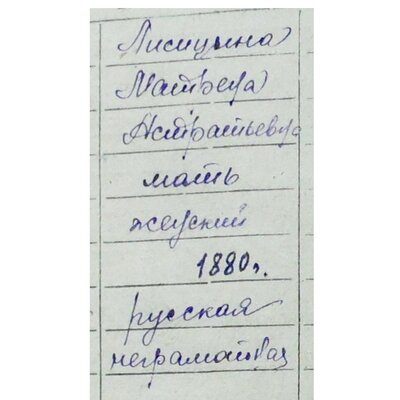 Лисицына
Матрёна
Истратьевна
мать
женский
1880 г.
русская
неграмотная